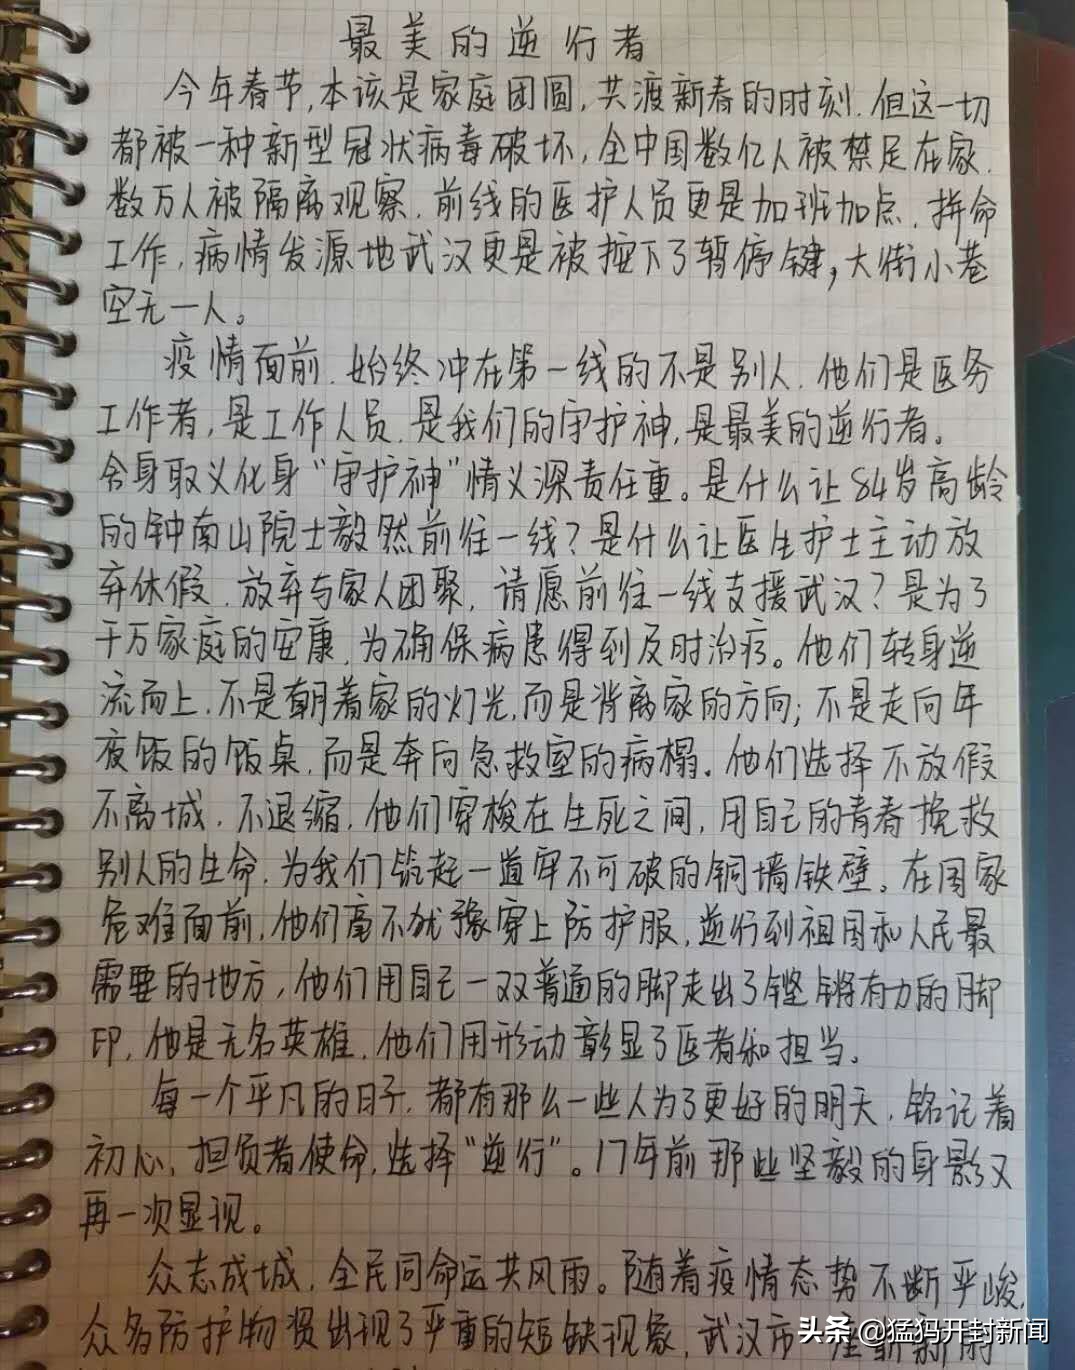 最美的逆行者
今年春节,本该是家庭团圆,共渡新春的时刻.但这一切
都被一种新型冠状病毒破坏,全中国数亿人被禁足在家.
数万人被隔离观察.前线的医护人员更是加班加点.拼命
工作.病情发源地武汉更是被按下了暂停键,大街小巷
空无一人。
疫情面前.始终冲在第一线的不是别人.他们是医务
工作者,是工作人员.是我们的守护神,是最美的逆行者。
舍身取义化身“守护神”情义深责任重。是什么让84岁高龄
的钟南山院士毅然前往一线?是什么让医生护士主动放
弃休假.放弃与家人团聚,请愿前往一线支援武汉?是为了
千万家庭的安康.为确保病患得到及时治疗。他们转身逆
流而上.不是朝着家的灯光,而是背离家的方向;不是走向年
夜饭的饭桌.而是奔向急救室的病榻。他们选择不放假
不离城.不退缩.他们穿梭在生死之间,用自己的青春挽救
别人的生命.为我们筑起一道牢不可破的铜墙铁壁。在国家
危难面前,他们毫不犹豫穿上防护服,逆行到祖国和人民最
需要的地方,他们用自己一双普通的脚走出了铿锵有力的脚
印,他是无名英雄.他们用形动彰显了医者和担当。
每一个平凡的日子.都有那么一些人为了更好的明天.铭记着
初心.担负着使命,选择“逆行”。17年前那些坚毅的身影又
再一次显现。
众志成城.全民同命运共风雨。随着疫情态势不断严峻,
众多防护物资出现了严重的短缺现象.武汉市一座新新的
头条@猛犸开封新闻